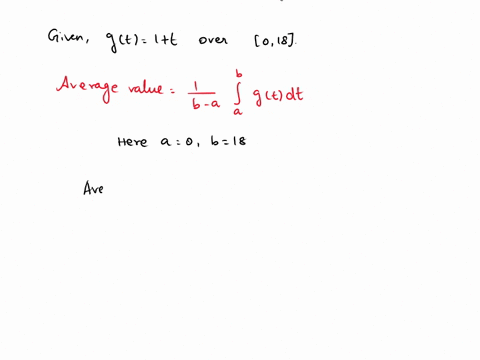 Given, g(t) = 1+t over [0,18].
Average value = 1/(b-a) ∫_a^b g(t) dt
Here a = 0, b = 18
Ave